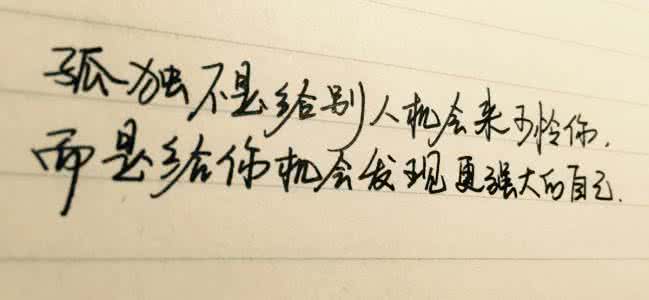 孤独不是给别人机会来可怜你，
而是给你机会发现更强大的自己.